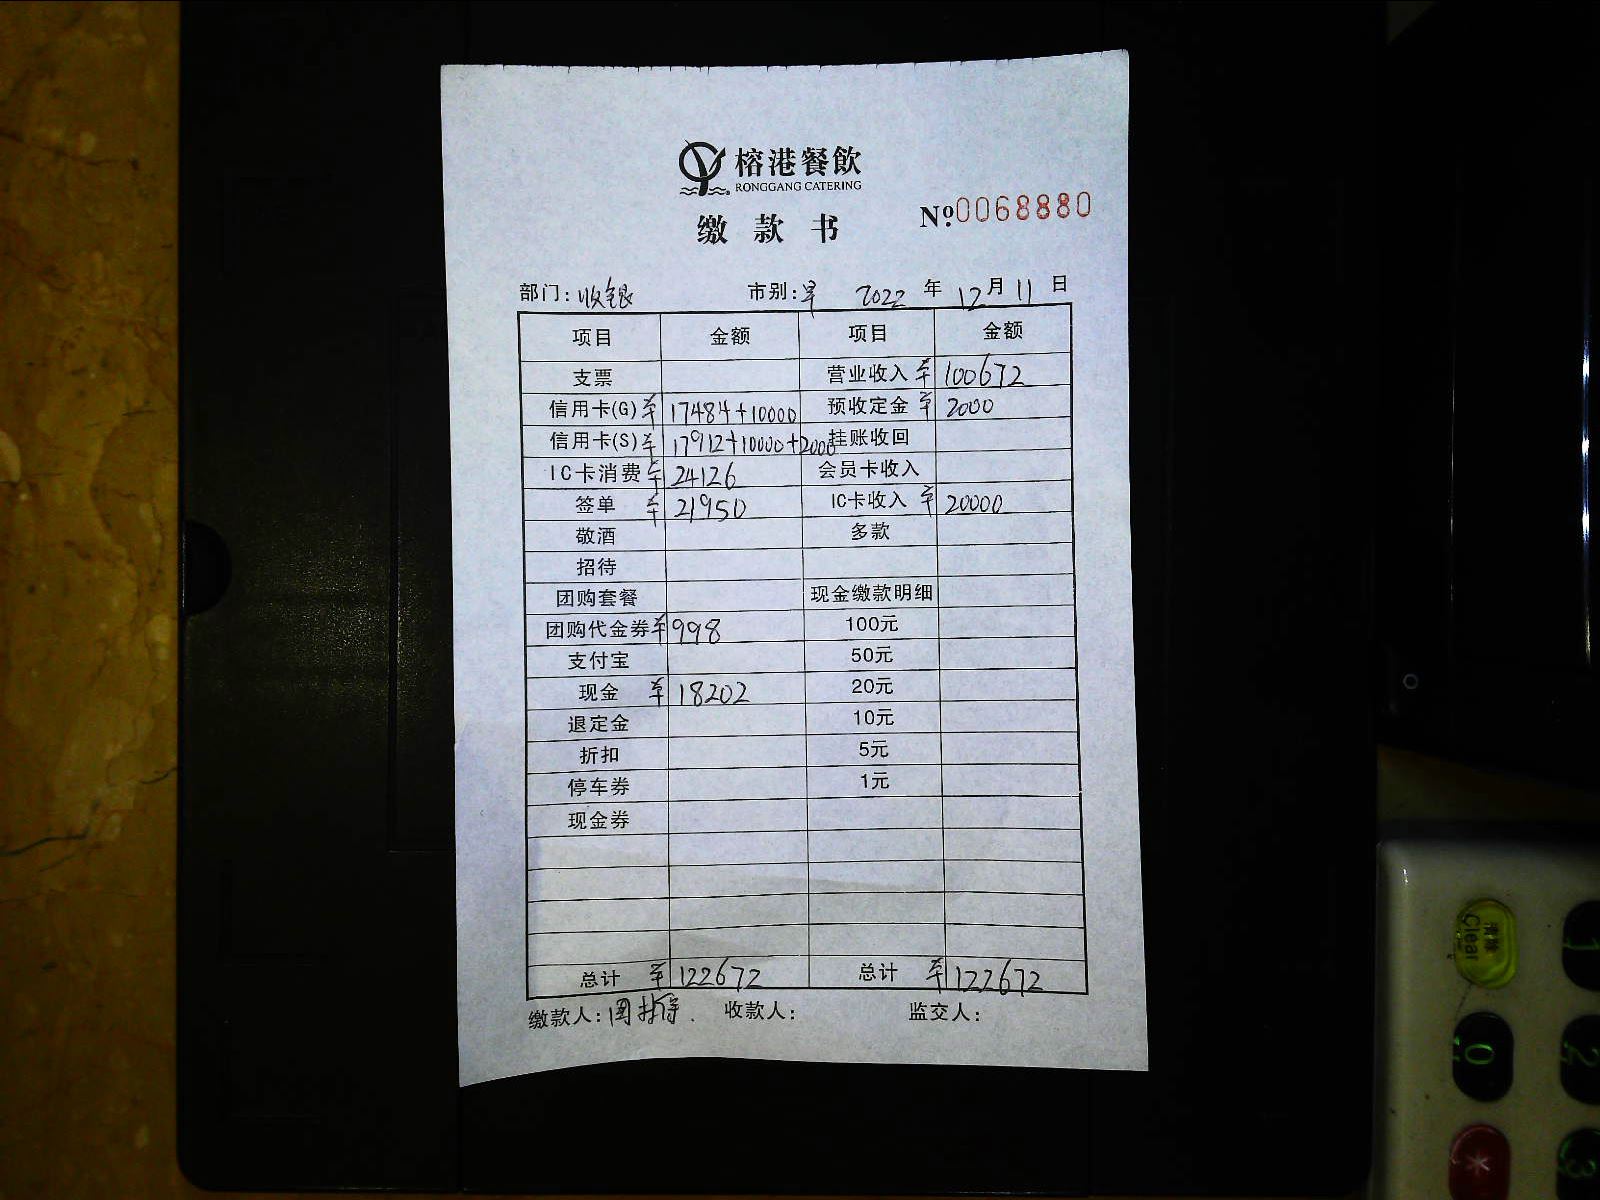 榕港餐飲
RONGGANG CATERING
缴款书 №0068880
部门：收银 市别：早 2022年12月11日
项目 金额 项目 金额
支票 营业收入 ¥100672
信用卡(G) ¥17484+10000 预收定金 ¥2000
信用卡(S) ¥17912+10000+2000 挂账收回
IC卡消费 ¥24126 会员卡收入
签单 ¥21950 IC卡收入 ¥20000
敬酒 多款
招待
团购套餐 现金缴款明细
团购代金券 ¥998 100元
支付宝 50元
现金 ¥18202 20元
退定金 10元
折扣 5元
停车券 1元
现金券
总计 ¥122672 总计 ¥122672
缴款人： 收款人： 监交人：
清除
Clear
1
0
2
*
3